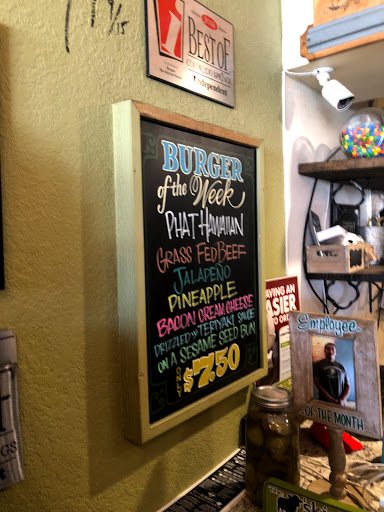 15
1
BEST OF
COLORADO SPRINGS
Independent
BURGER
of the Week
PHAT HAWAIIAN
GRASS FED BEEF
JALAPEÑO
PINEAPPLE
BACON CREAM CHEESE
DRIZZLED w/ TERIYAKI SAUCE
ON A SESAME SEED BUN
ONLY $7.50
AVING AN
ASIER
Employee
OF THE MONTH
GS